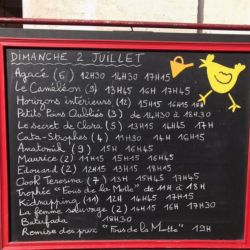 DIMANCHE 2 JUILLET
Agacé (6) 12H30 14H30 17H15
Le Caméléon (3) 13H45 16H 17H45
Horizons intérieurs (12) 15H15 16H15
Petits Pains Oubliés (3) de 14H30 à 18H30
Le secret de Clara (5) 13H15 14H45 17H
Cata-Strophes (4) 11H30 14H 16H15
Anatomik (9) 15H 16H45
Maurice (2) 11H15 15H15 16H45
Edouard (2) 12H15 13H15 18H
Cook Teresina (7) 13H 15H45 17H15
Trophée "Fous de la Motte" de 11H à 18H
Kidnapping (11) 12H 14H45 17H15
La femme sauvage (2) 14H15 16H 17H30
Batufada 18H30
Remise des prix "Fous de la Motte" 19H